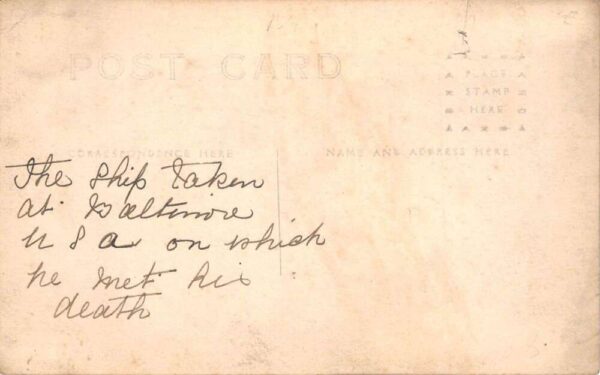 POST CARD
PLACE
STAMP
HERE
CORRESPONDENCE HERE
NAME AND ADDRESS HERE
The Ship taken
at Baltimore
U S a on which
he met his
death